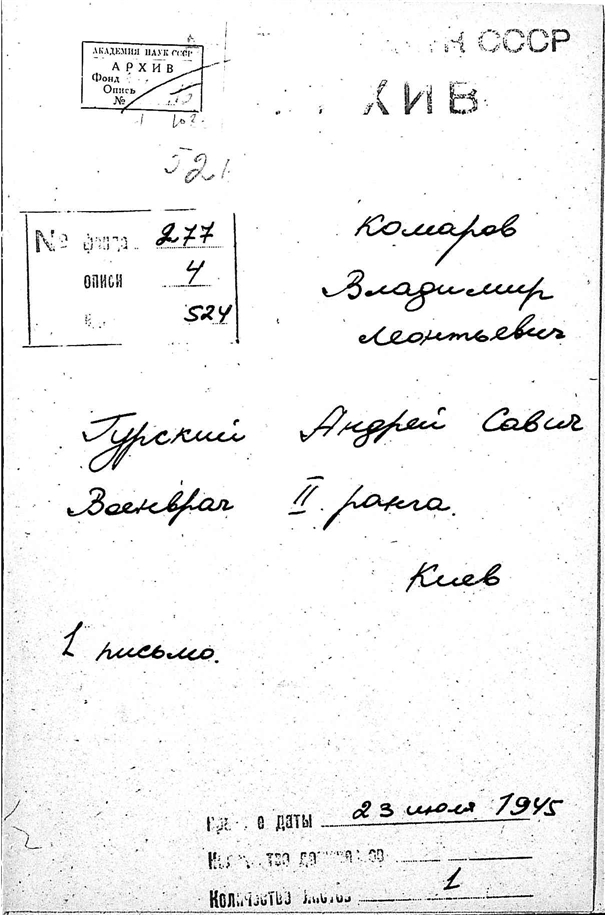 АКАДЕМИЯ НАУК СССР
АРХИВ
Фонд
Опись
№
СССР
ХИВ
521
№ фонда 277
описи 4
524
Комаров
Владимир
Леонтьевич
Гурский Андрей Савич
Военврач II ранга.
Киев
1 письмо.
даты 23 июля 1945
Количество листов 1